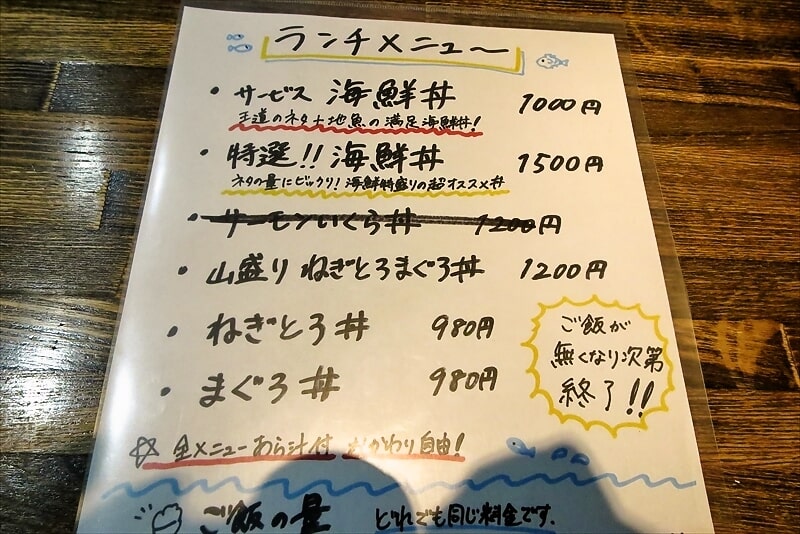 ランチメニュー
・サービス 海鮮丼 1000円
王道のネタ+地魚の満足海鮮丼!
・特選!! 海鮮丼 1500円
ネタの量にビックリ! 海鮮特盛りの超オススメ丼
・サーモンいくら丼 1200円
・山盛り ねぎとろまぐろ丼 1200円
・ねぎとろ丼 980円
・まぐろ丼 980円
ご飯が
無くなり次第
終了!!
☆ 全メニューあら汁付 おかわり自由!
ご飯の量 どれでも同じ料金です.